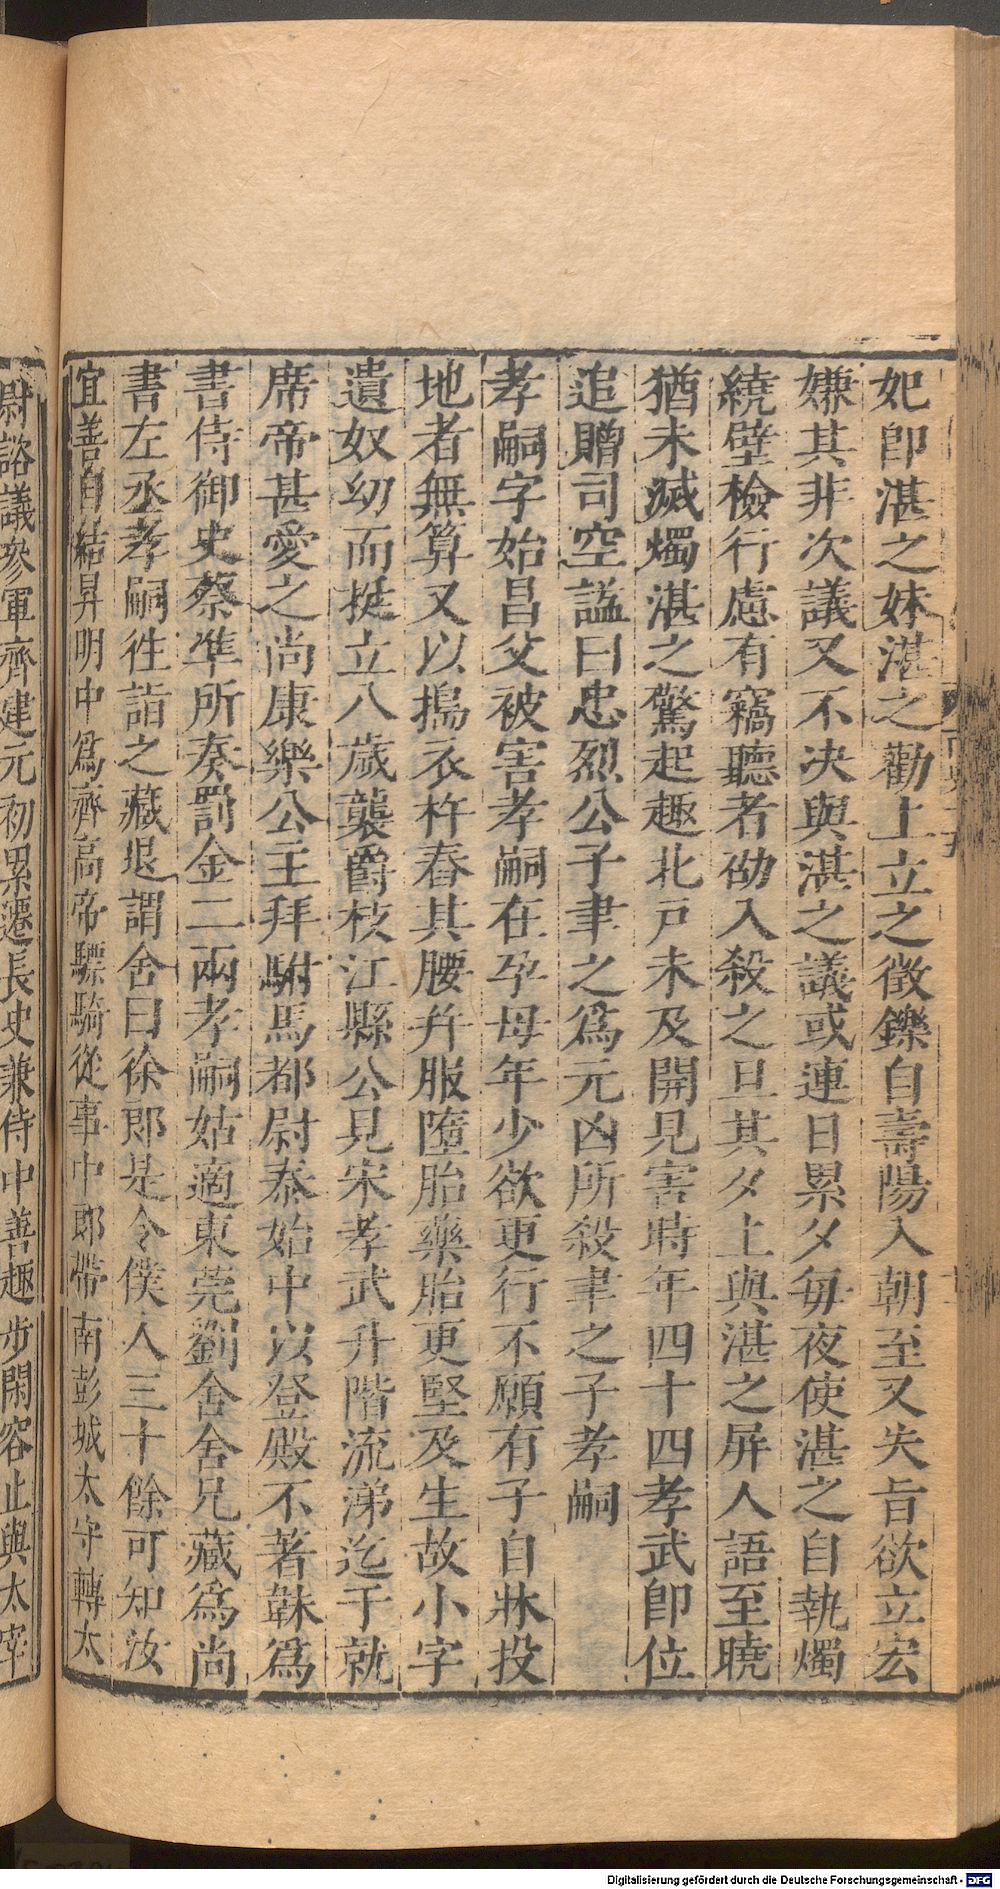 妃卽湛之妹湛之勸上立之徴鑠自壽陽入朝至又失旨欲立宏
嫌其非次議又不决與湛之議或連日累夕每夜使湛之自執燭
繞壁檢行慮有竊聽者劭入殺之旦其夕上與湛之屏人語至曉
猶未滅燭湛之驚起趣北戸未及開見害時年四十四孝武卽位
追贈司空謚曰忠烈公子聿之爲元凶所殺聿之子孝嗣
孝嗣字始昌父被害孝嗣在孕母年少欲更行不願有子自牀投
地者無算又以擣衣杵舂其腰幷服墮胎藥胎更堅及生故小字
遺奴幼而挺立八歲襲爵枝江縣公見宋孝武升階流涕迄于就
席帝甚愛之尚康樂公主拜駙馬都尉泰始中以登殿不著韎爲
書侍御史蔡準所奏罰金二兩孝嗣姑適東莞劉舍舍兄藏爲尚
書左丞孝嗣往詣之藏退謂舍曰徐郎是令僕人三十餘可知汝
宜善自結昇明中爲齊高帝驃騎從事中郎帶南彭城太守轉太
尉諮議參軍齊建元初累遷長史兼侍中善趣步閑容止與太宰
Digitalisierung gefördert durch die Deutsche Forschungsgemeinschaft - DFG